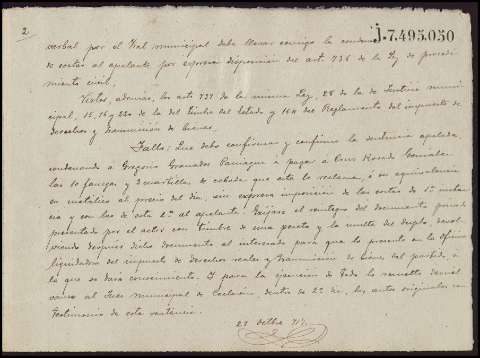 2.
J.7.495.050
verbal por el Tral municipal debe llevar consigo la condena
de costas al apelante por expresa disposicion del art 736 de la ley de procedi
miento civil.
Vistos, además, los arts 737 de la misma Ley, 28 de la de Justicia muni
cipal, 15, 16 y 220 de la del timbre del Estado y 164 del Reglamento del impuesto de
derechos y transmision de bienes.
Fallo: Que debo confirmar y confirmo la sentencia apelada
condenando á Gregorio Granados Paniagua á pagar á Luis Rosado Gonzalez
las 10 fanegas y 2 cuartillas de cebada que este le reclama, ó su equivalencia
en metálico al precio del dia, sin expresa imposicion de las costas de 1ª instan
cia y con las de esta 2ª al apelante. Exijase el reintegro del documento privado
presentado por el actor con timbre de una peseta y la multa del duplo, devol
viendo despues dicho documento al interesado para que lo presente en la oficina
liquidadora del impuesto de derechos reales y transmision de bienes del partido, á
la que se dará conocimiento. Y para la ejecucion de todo lo resuelto devuel
vanse al Juez municipal de dentro de 2º dia, los autos originales con
testimonio de esta sentencia.
27 Octbre 917.